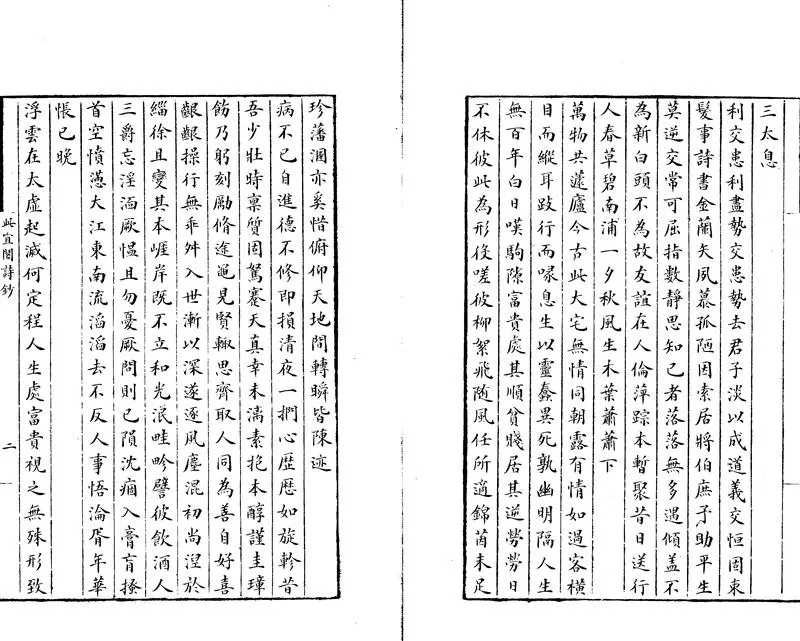 三太息
利交患利盡勢交患勢去君子淡以成道義交恒固束
髮事詩書金蘭矢夙慕孤陋因索居將伯庶予助平生
莫逆交常可屈指數靜思知己者落落無多遇傾蓋不
為新白頭不為故友誼在人倫萍踪本暫聚昔日送行
人春草碧南浦一夕秋風生木葉蕭蕭下
萬物共蘧廬今古此大宅無情同朝露有情如過客橫
目而縱耳跂行而喙息生以靈蠢異死孰幽明隔人生
無百年白日嘆駒隙富貴處其順貧賤居其逆勞勞日
不休彼此為形役嗟彼柳絮飛随風任所適錦茵未足
珍藩溷亦奚惜俯仰天地間轉瞬皆陳迹
病不已自進德不修即損清夜一捫心歷歷如旋軫昔
吾少壯時禀質固駑蹇天真幸未漓素抱本醇謹圭璋
飭乃躬刻勵脩途黽見賢輙思齊取人同為善自好喜
齪齪操行無乖舛入世漸以深遂逐風塵混初尚涅於
緇徐且變其本崖岸既不立和光泯畦畛譬彼飲酒人
三爵忘淫湎厥愠且勿憂厥問則已隕沈痼入膏肓搔
首空憤懣大江東南流滔滔去不反人事悟淪胥年華
悵已晚
浮雲在太虛起滅何定程人生處富貴視之無殊形致
此宜閣詩鈔
二